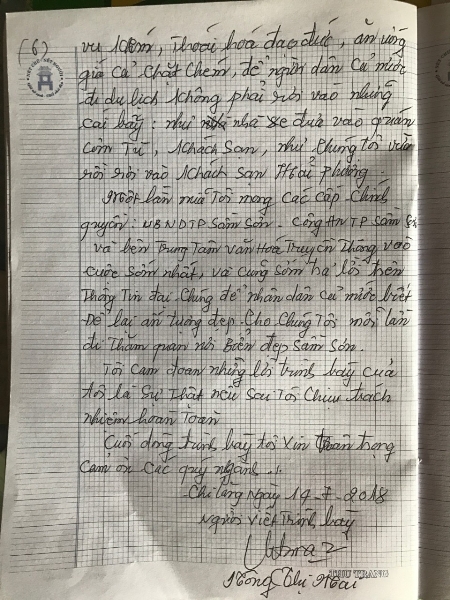 (6)
vụ kém, Thoái hoá đạo đức, ăn uống
giá cả chặt chém, để người dân cả nước
đi du lịch không phải rơi vào những
cái bẫy: như nhà xe đưa vào quán
cơm Tù, khách sạn, như chúng Tôi vừa
rồi rơi vào khách sạn Hải phương.
Một lần nữa Tôi mong các cấp chính
quyền: UBNDTP Sầm Sơn. Công An TP Sầm Sơn
và bên Trung Tâm văn Hoá Truyền Thông vào
cuộc sớm nhất, và cũng sớm trả lời trên
Thông Tin đại chúng để nhân dân cả nước biết
Để lại ấn tượng đẹp cho chúng Tôi mỗi lần
đi Thăm quan nơi Biển đẹp Sầm Sơn.
Tôi cam đoan những lời trình bày của
tôi là Sự Thật nếu sai Tôi chịu trách
nhiệm hoàn Toàn
Cuối dòng trình bày tôi xin Trân trọng
cảm ơn các quý ngành ./.
Chi Lăng Ngày 14-7-2018
Người viết Trình bày
THU TRANG
Nông Thị Hoài